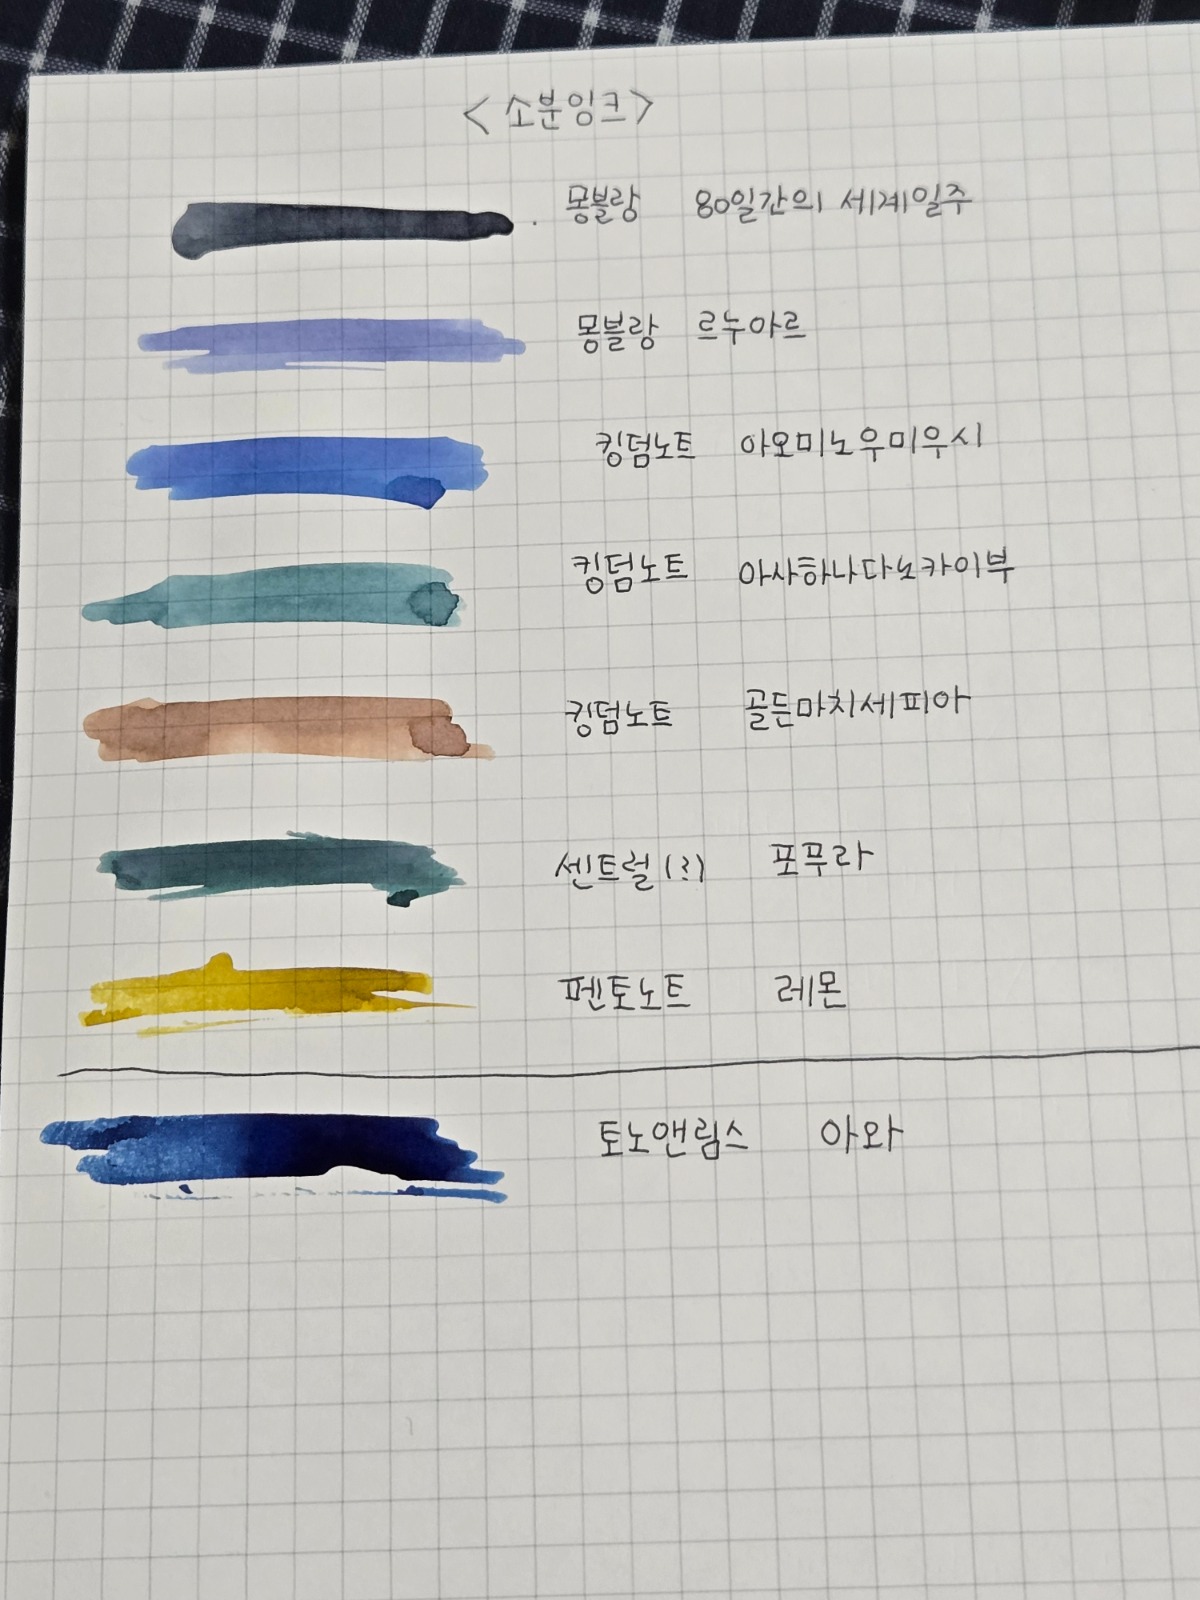 <소분잉크>
몽블랑 80일간의 세계일주
몽블랑 르누아르
킹덤노트 아오미노우미우시
킹덤노트 아사하나다노카이부
킹덤노트 골든마치세피아
센트럴(?) 포푸라
펜토노트 레몬
토노앤림스 아와